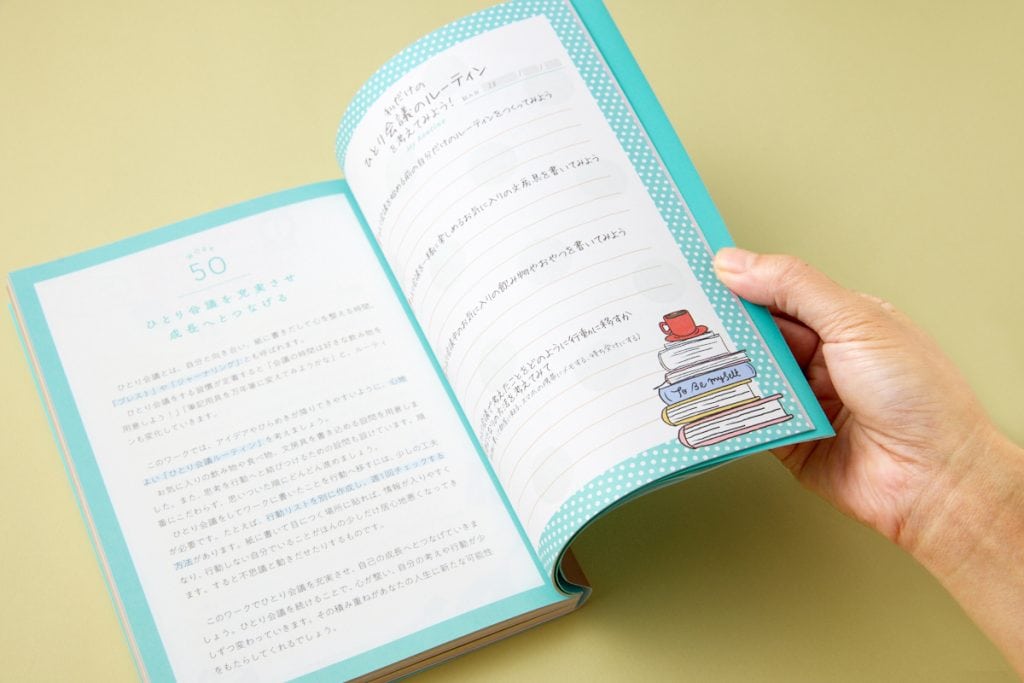 50
ひとり会議を充実させ
成長へとつなげる
ひとり会議とは、自分と向き合い、紙に書きだして心を整える時間。
「ブレスト」や「ジャーナリング」とも呼ばれます。
ひとり会議をする習慣が定着すると「会議の時間は好きな飲み物を
用意しよう！」「筆記用具を万年筆に変えてみようかな」と、ルーティ
ンも変化していきます。
このワークでは、アイデアやひらめきが降りてきやすいように、心地
よい「ひとり会議ルーティン」を考えましょう。
お気に入りの飲み物や食べ物、文房具を書き込める設問を用意しま
した。また、思考を行動へと結びつけるための設問も設けています。順
番にこだわらず、思いついた順にどんどん進めましょう。
ひとり会議をしてワークに書いたことを行動へ移すには、少しの工夫
が必要です。たとえば、行動リストを別に作成し、週1回チェックする
方法があります。紙に書いて目につく場所に貼れば、情報が入りやすく
なり、行動しない自分でいることがほんの少しだけ居心地悪くなってき
ます。すると不思議と動きだせたりするものです。
このワークでひとり会議を充実させ、自己の成長へとつなげていきま
しょう。ひとり会議を続けることで、心が整い、自分の考えや行動が少
しずつ変わっていきます。その積み重ねがあなたの人生に新たな可能性
をもたらしてくれるでしょう。
私だけの
ひとり会議のルーティン
を考えてみよう！
My Routine
記入日 20 / /
を始める前の自分だけのルーティンをつくってみよう
を一緒に楽しめるお気に入りの文房具を書いてみよう
中のお気に入りの飲み物やおやつを書いてみよう
で考えたことをどのように行動に移すか
の方法を考えてみて
スマホの待受にメモする、待ち受けにする)
To Be myself